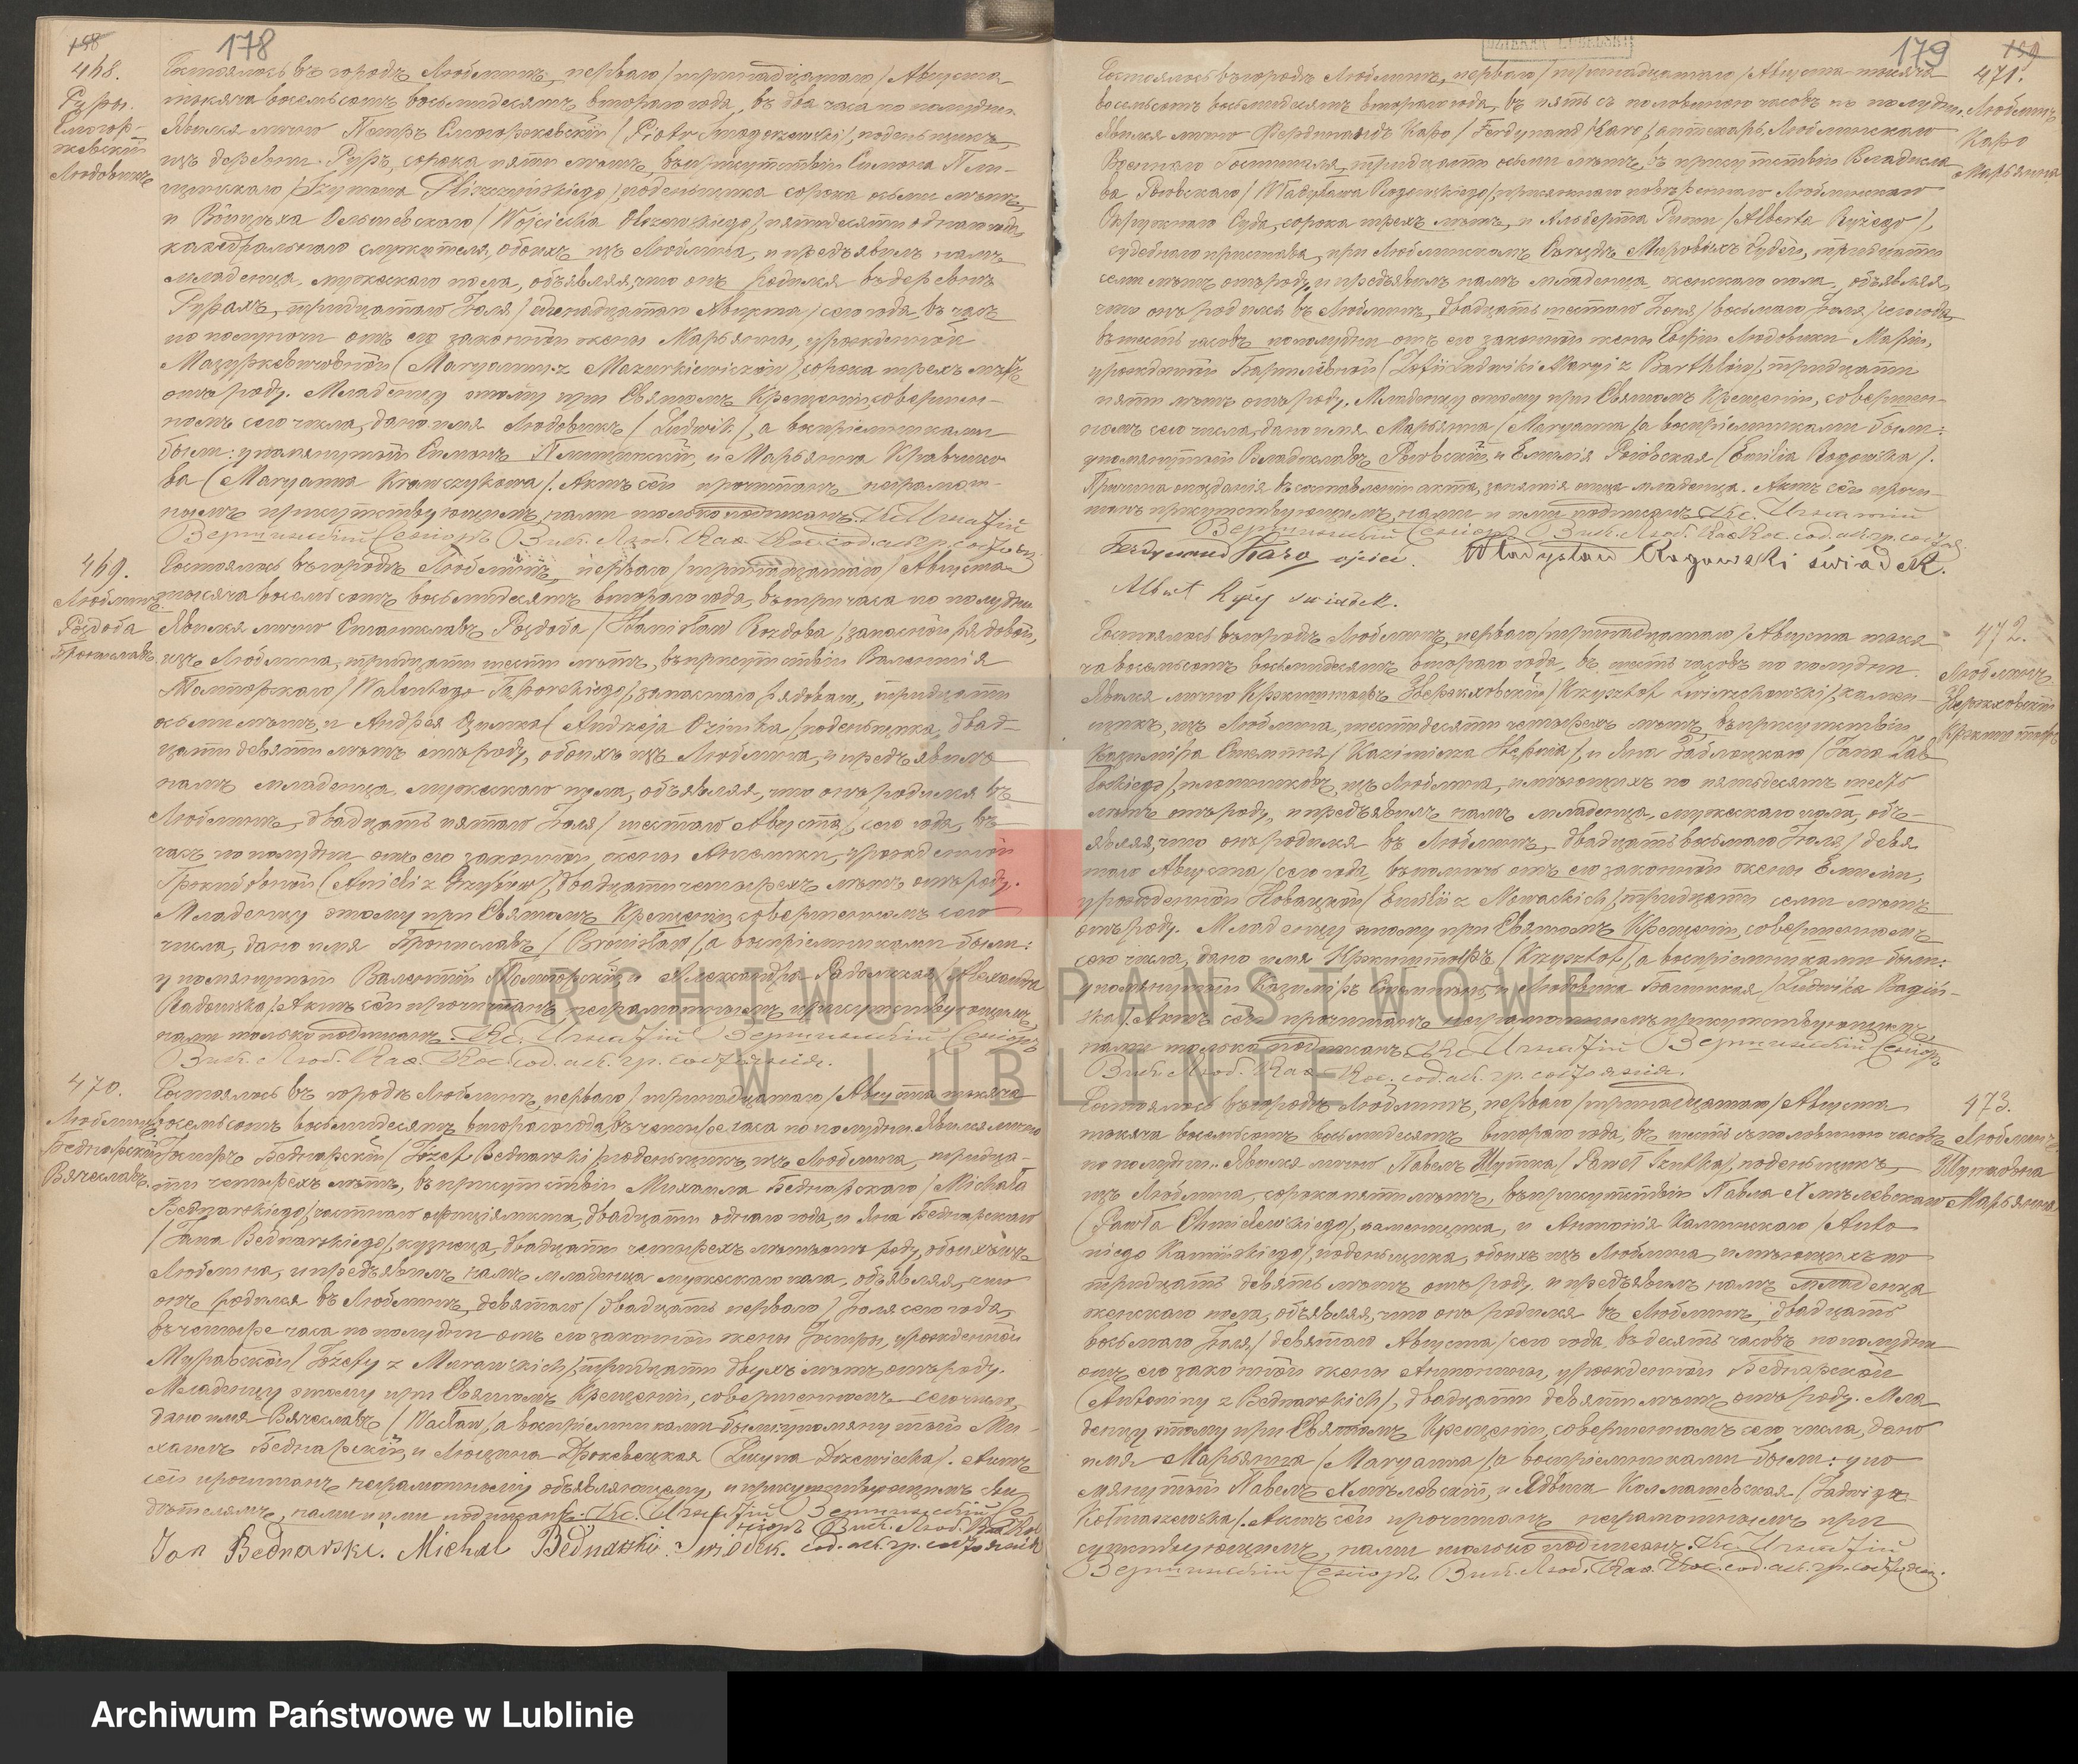 158
178
468.
Руры.
Смогор-
жевскій
Людовикъ
Состоялось въ городѣ Люблинѣ, перваго /тринадцатаго/ Августа
тысяча восемьсотъ восемьдесятъ втораго года, въ два часа по полудни.
Явился лично Петръ Смогоржевскій /Piotr Smogorzewski/, поденьщикъ,
изъ деревни Руръ, сорока пяти лѣтъ, въ присутствіи Симона Пли-
щинскаго /Szymona Pliszczyńskiego/ поденьщика сорока осьми лѣтъ,
и Войцѣха Ольшевскаго /Wojciecha Olszewskiego/, пятидесяти одного года,
каѳедральнаго служителя, обоихъ изъ Люблина, и предъявилъ намъ
младенца, мужескаго пола, объявляя, что онъ родился въ деревнѣ
Рурахъ, тридцатаго Іюля /одинадцатаго Августа/ сего года, въ часъ
по полуночи отъ его законной жены Марьянны, урожденной
Мазуркевичовной (Maryanny z Mazurkiewiczów), сорока трехъ лѣтъ
отъ роду. Младенцу этому при Святомъ Крещеніи, совершен-
номъ сего числа, дано имя Людовикъ /Ludwik/, а воспріемниками
были: упомянутый Симонъ Плищинскій, и Марьянна Кравчико-
ва (Maryanna Krawczykowa/. Актъ сей прочитанъ неграмот-
нымъ присутствующимъ, нами только подписанъ. Кс. Игнатій
469.
Люблинъ
Роздоба
Брониславъ
Состоялось въ городѣ Люблинѣ, перваго /тринадцатаго/ Августа
тысяча восемьсотъ восемьдесятъ втораго года, въ три часа по полудни.
Явился лично Станиславъ Роздоба /Stanisław Rozdoba/, запасный рядовой,
изъ Люблина, тридцати шести лѣтъ, въ присутствіи Валентія
запаснаго рядоваго, тридцати
осьми лѣтъ, и Андрея Озимка (Andrzeja Ozimka/, поденьщика, двад-
цати девяти лѣтъ отъ роду, обоихъ изъ Люблина, и предъявилъ
намъ младенца мужескаго пола, объявляя, что онъ родился въ
Люблинѣ, двадцать пятаго Іюля /шестаго Августа/, сего года, въ
часъ по полудни отъ его законной жены Анельки, урожденной
двадцати четырехъ лѣтъ отъ роду.
Младенцу этому при Святомъ Крещеніи, совершенномъ сего
числа, дано имя Брониславъ /Bronisław/, а воспріемниками были:
упомянутый Валентій
Актъ сей прочитанъ неграмотнымъ присутствующимъ,
нами только подписанъ. Кс. Игнатій
470.
Люблинъ
Беднарскій
Вячеславъ.
Состоялось въ городѣ Люблинѣ, перваго /тринадцатаго/ Августа тысяча
восемьсотъ восемьдесятъ втораго года, въ четыре часа по полудни. Явился лично
Іосифъ Беднарскій /Józef Bednarski/, поденьщикъ, изъ Люблина, тридца-
ти четырехъ лѣтъ, въ присутствіи Михаила Беднарскаго /Michała
Bednarskiego/, частнаго оффиціялиста, двадцати одного года, и Яна Беднарскаго
/Jana Bednarskiego/, кузнеца, двадцати четырехъ лѣтъ отъ роду, обоихъ изъ
Люблина, и предъявилъ намъ младенца мужескаго пола, объявляя, что
онъ родился въ Люблинѣ, девятаго /двадцать перваго/ Іюля сего года,
въ четыре часа по полудни отъ его законной жены Іосифы, урожденной
Муравской /Józefy z Murawskich/, тридцати двухъ лѣтъ отъ роду.
Младенцу этому при Святомъ Крещеніи, совершенномъ сего числа,
дано имя Вячеславъ /Wacław/, а воспріемниками были: упомянутый Ми-
хаилъ Беднарскій, и Люцина Држевецкая (Lucyna Drzewiecka/. Актъ
сей прочитанъ неграмотному объявляющему, и присутствующимъ сви-
дѣтелямъ, нами и ими подписанъ. Кс. Игнатій
Jan Bednarski. Michał Bednarski Swiadek.
179
159
471.
Люблинъ
Каро
Марьянна
Состоялось въ городѣ Люблинѣ, перваго /тринадцатаго/ Августа тысяча
восемьсотъ восемьдесятъ втораго года, въ пять съ половиною часовъ по полудни.
Явился лично Фердинандъ Каро /Ferdynand Karo/, аптекарь Люблинскаго
Военнаго Госпиталя, тридцати осьми лѣтъ, въ присутствіи Владисла-
ва Роговскаго /Władysława Rogowskiego/, присяжнаго повѣреннаго Люблинскаго
Окружнаго Суда, сорока трехъ лѣтъ, и Альберта Ружи /Alberta Ryżego/,
судебнаго пристава, при Люблинскомъ Съѣздѣ Мировыхъ Судей, тридцати
семи лѣтъ отъ роду, и предъявилъ намъ младенца, женскаго пола, объявляя,
что онъ родился въ Люблинѣ, двадцать шестаго Іюня /восьмаго Іюля/ сего года,
въ шесть часовъ по полудни отъ его законной жены Софіи Людовики Маріи,
урожденной Бартлевной (Zofii Ludwiki Maryi z Barthlów/, тридцати
пяти лѣтъ отъ роду. Младенцу этому при Святомъ Крещеніи, совершен-
номъ сего числа, дано имя Марьянна /Maryanna/, а воспріемниками были:
упомянутый Владиславъ Роговскій, и Емилія Роговская /Emilia Rogowska/.
Причина опозданія въ составленіи акта, занятія отца младенца. Актъ сей прочи-
танъ присутствующимъ, нами и ими подписанъ. Кс. Игнатій
Фердинанд Каро ojciec. Władysław Rogowski świadek.
Albert Ryży świadek.
472.
Люблинъ
Звержховскій
Кржиштофъ
Состоялось въ городѣ Люблинѣ, перваго /тринадцатаго/ Августа тыся-
ча восемьсотъ восемьдесятъ втораго года, въ шесть часовъ по полудни.
Явился лично Кржиштофъ Звержховскій /Krzysztof Zwierzchowski/, камен-
щикъ, изъ Люблина, шестидесяти четырехъ лѣтъ, въ присутствіи
Казиміра Стемпня /Kazimierza Stępnia/, и Яна Заблоцкаго /Jana Zab-
łockiego/, плотниковъ, изъ Люблина, имѣющихъ по пятьдесятъ шесть
лѣтъ отъ роду, и предъявилъ намъ младенца, мужескаго пола, объ-
являя, что онъ родился въ Люблинѣ, двадцать восьмаго Іюля /девя-
таго Августа/ сего года, въ полночь отъ его законной жены Емиліи,
урожденной Новацкой /Emilii z Nowackich/, тридцати семи лѣтъ
отъ роду. Младенцу этому при Святомъ Крещеніи, совершенномъ
сего числа, дано имя Кржиштофъ /Krzysztof/, а воспріемниками были:
упомянутый Казиміръ Стемпень, и Людовика Багинская /Ludwika Bagiń-
ska/. Актъ сей прочитанъ неграмотнымъ присутствующимъ,
нами только подписанъ. Кс. Игнатій
473.
Люблинъ
Шутковна
Марьянна
Состоялось въ городѣ Люблинѣ, перваго /тринадцатаго/ Августа
тысяча восемьсотъ восемьдесятъ втораго года, въ шесть съ половиною часовъ
по полудни. Явился лично Павелъ Шутка /Paweł Szutka/, поденьщикъ,
изъ Люблина, сорока пяти лѣтъ, въ присутствіи Павла Хмѣлевскаго
(Pawła Chmielewskiego/, каменщика, и Антонія Каминскаго /Anto-
niego Kamińskiego/, поденьщика, обоихъ изъ Люблина, имѣющихъ по
тридцать девять лѣтъ отъ роду, и предъявилъ намъ младенца
женскаго пола, объявляя, что онъ родился въ Люблинѣ, двадцать
восьмаго Іюля /девятаго Августа/ сего года, въ десять часовъ по полудни
отъ его законной жены Антонины, урожденной Беднарской
(Antoniny z Bednarskich/, двадцати девяти лѣтъ отъ роду. Мла-
денцу этому при Святомъ Крещеніи, совершенномъ сего числа, дано
имя Марьянна /Maryanna/, а воспріемниками были: упо-
мянутый Павелъ Хмѣлевскій, и Ядвига Колмашевская /Jadwiga
Kołmaszewska/. Актъ сей прочитанъ неграмотнымъ при-
сутствующимъ, нами только подписанъ. Кс. Игнатій
ARCHIWUM PAŃSTWOWE
W LUBLINIE
Archiwum Państwowe w Lublinie